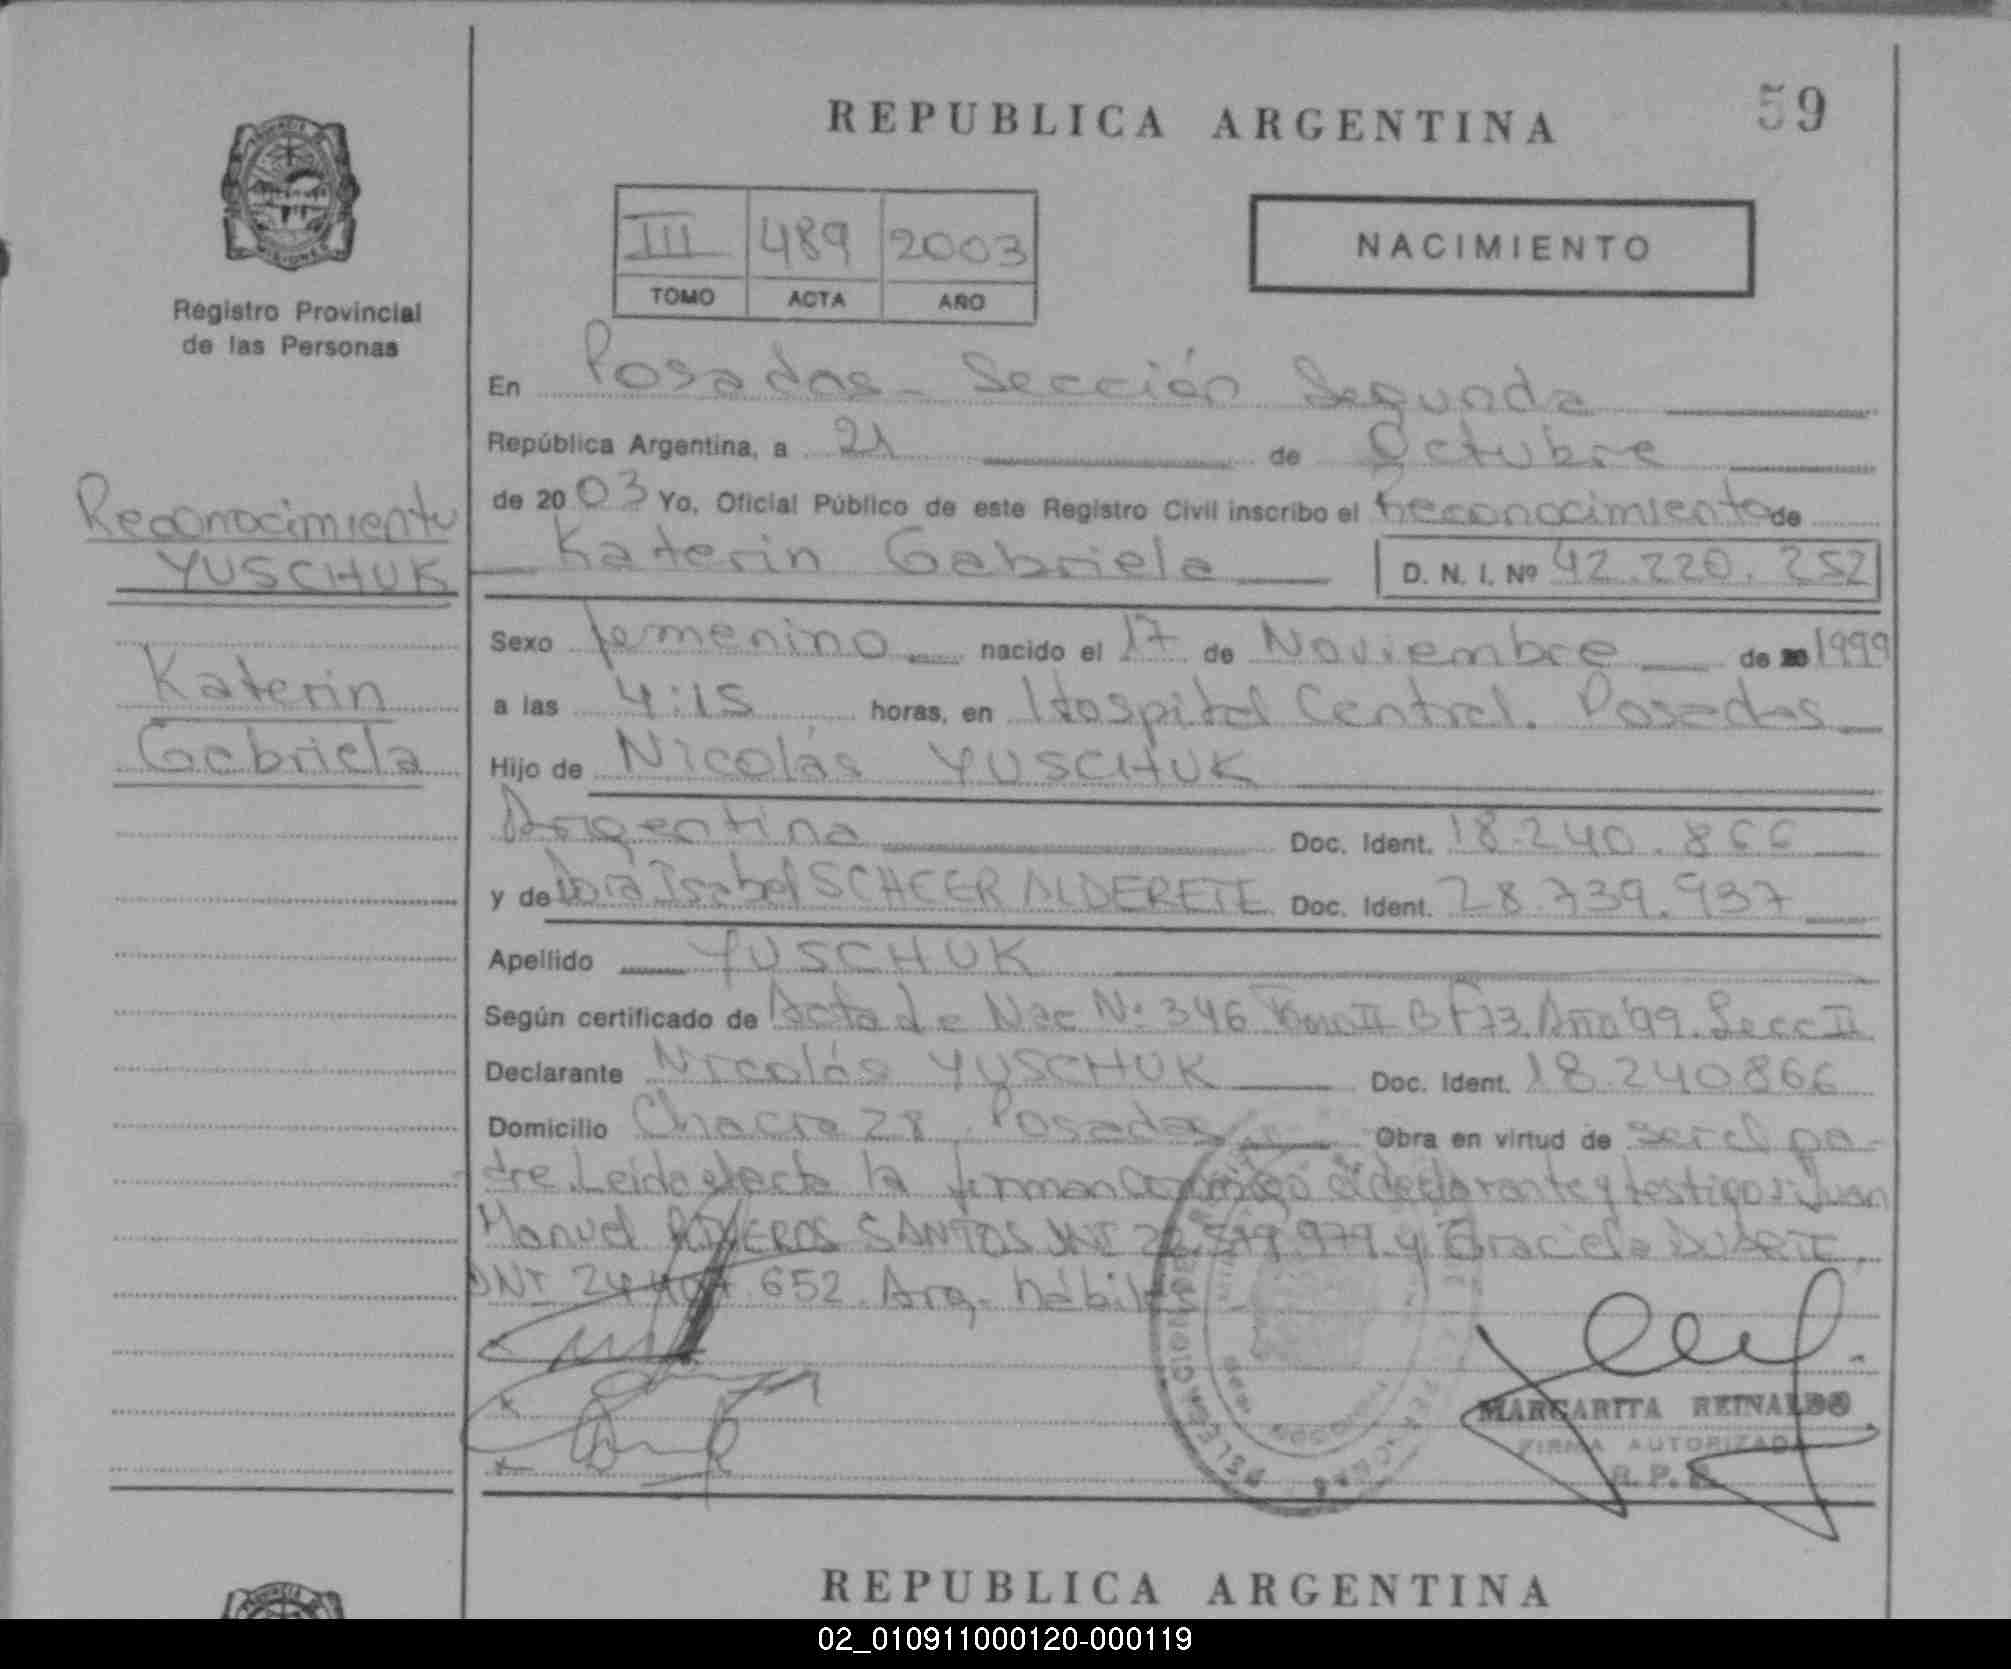 REPUBLICA ARGENTINA
59
III 489 2003
TOMO ACTA AÑO
NACIMIENTO
Registro Provincial
de las Personas
Reconocimiento
YUSCHUK
Katerin
Gabriela
En Posadas - Sección Segunda
República Argentina, a 21 de Octubre
de 2003 Yo, Oficial Público de este Registro Civil inscribo el Reconocimiento de
Katerin Gabriela D. N. I. Nº 42.220.252
Sexo femenino nacido el 17 de Noviembre de 1999
a las 4:15 horas, en Hospital Central. Posadas
Hijo de Nicolás YUSCHUK
Argentina Doc. Ident. 18.240.866
y de Isabel SCHEER ALDERETE Doc. Ident. 28.739.937
Apellido YUSCHUK
Según certificado de Acta de Nac Nº 346 Tomo II B F 73. Año '99. Secc II
Declarante Nicolás YUSCHUK Doc. Ident. 18.240866
Domicilio Chacra 28. Posadas Obra en virtud de ser el pa-
dre. Leida el acta la firman conmigo el declarante y testigos: Juan
Manuel SANTOS DNI y Graciela DUARTE,
DNI 652. Arg. hábiles
MARGARITA REINALDO
FIRMA AUTORIZADA
R. P. P.
REPUBLICA ARGENTINA
02_010911000120-000119